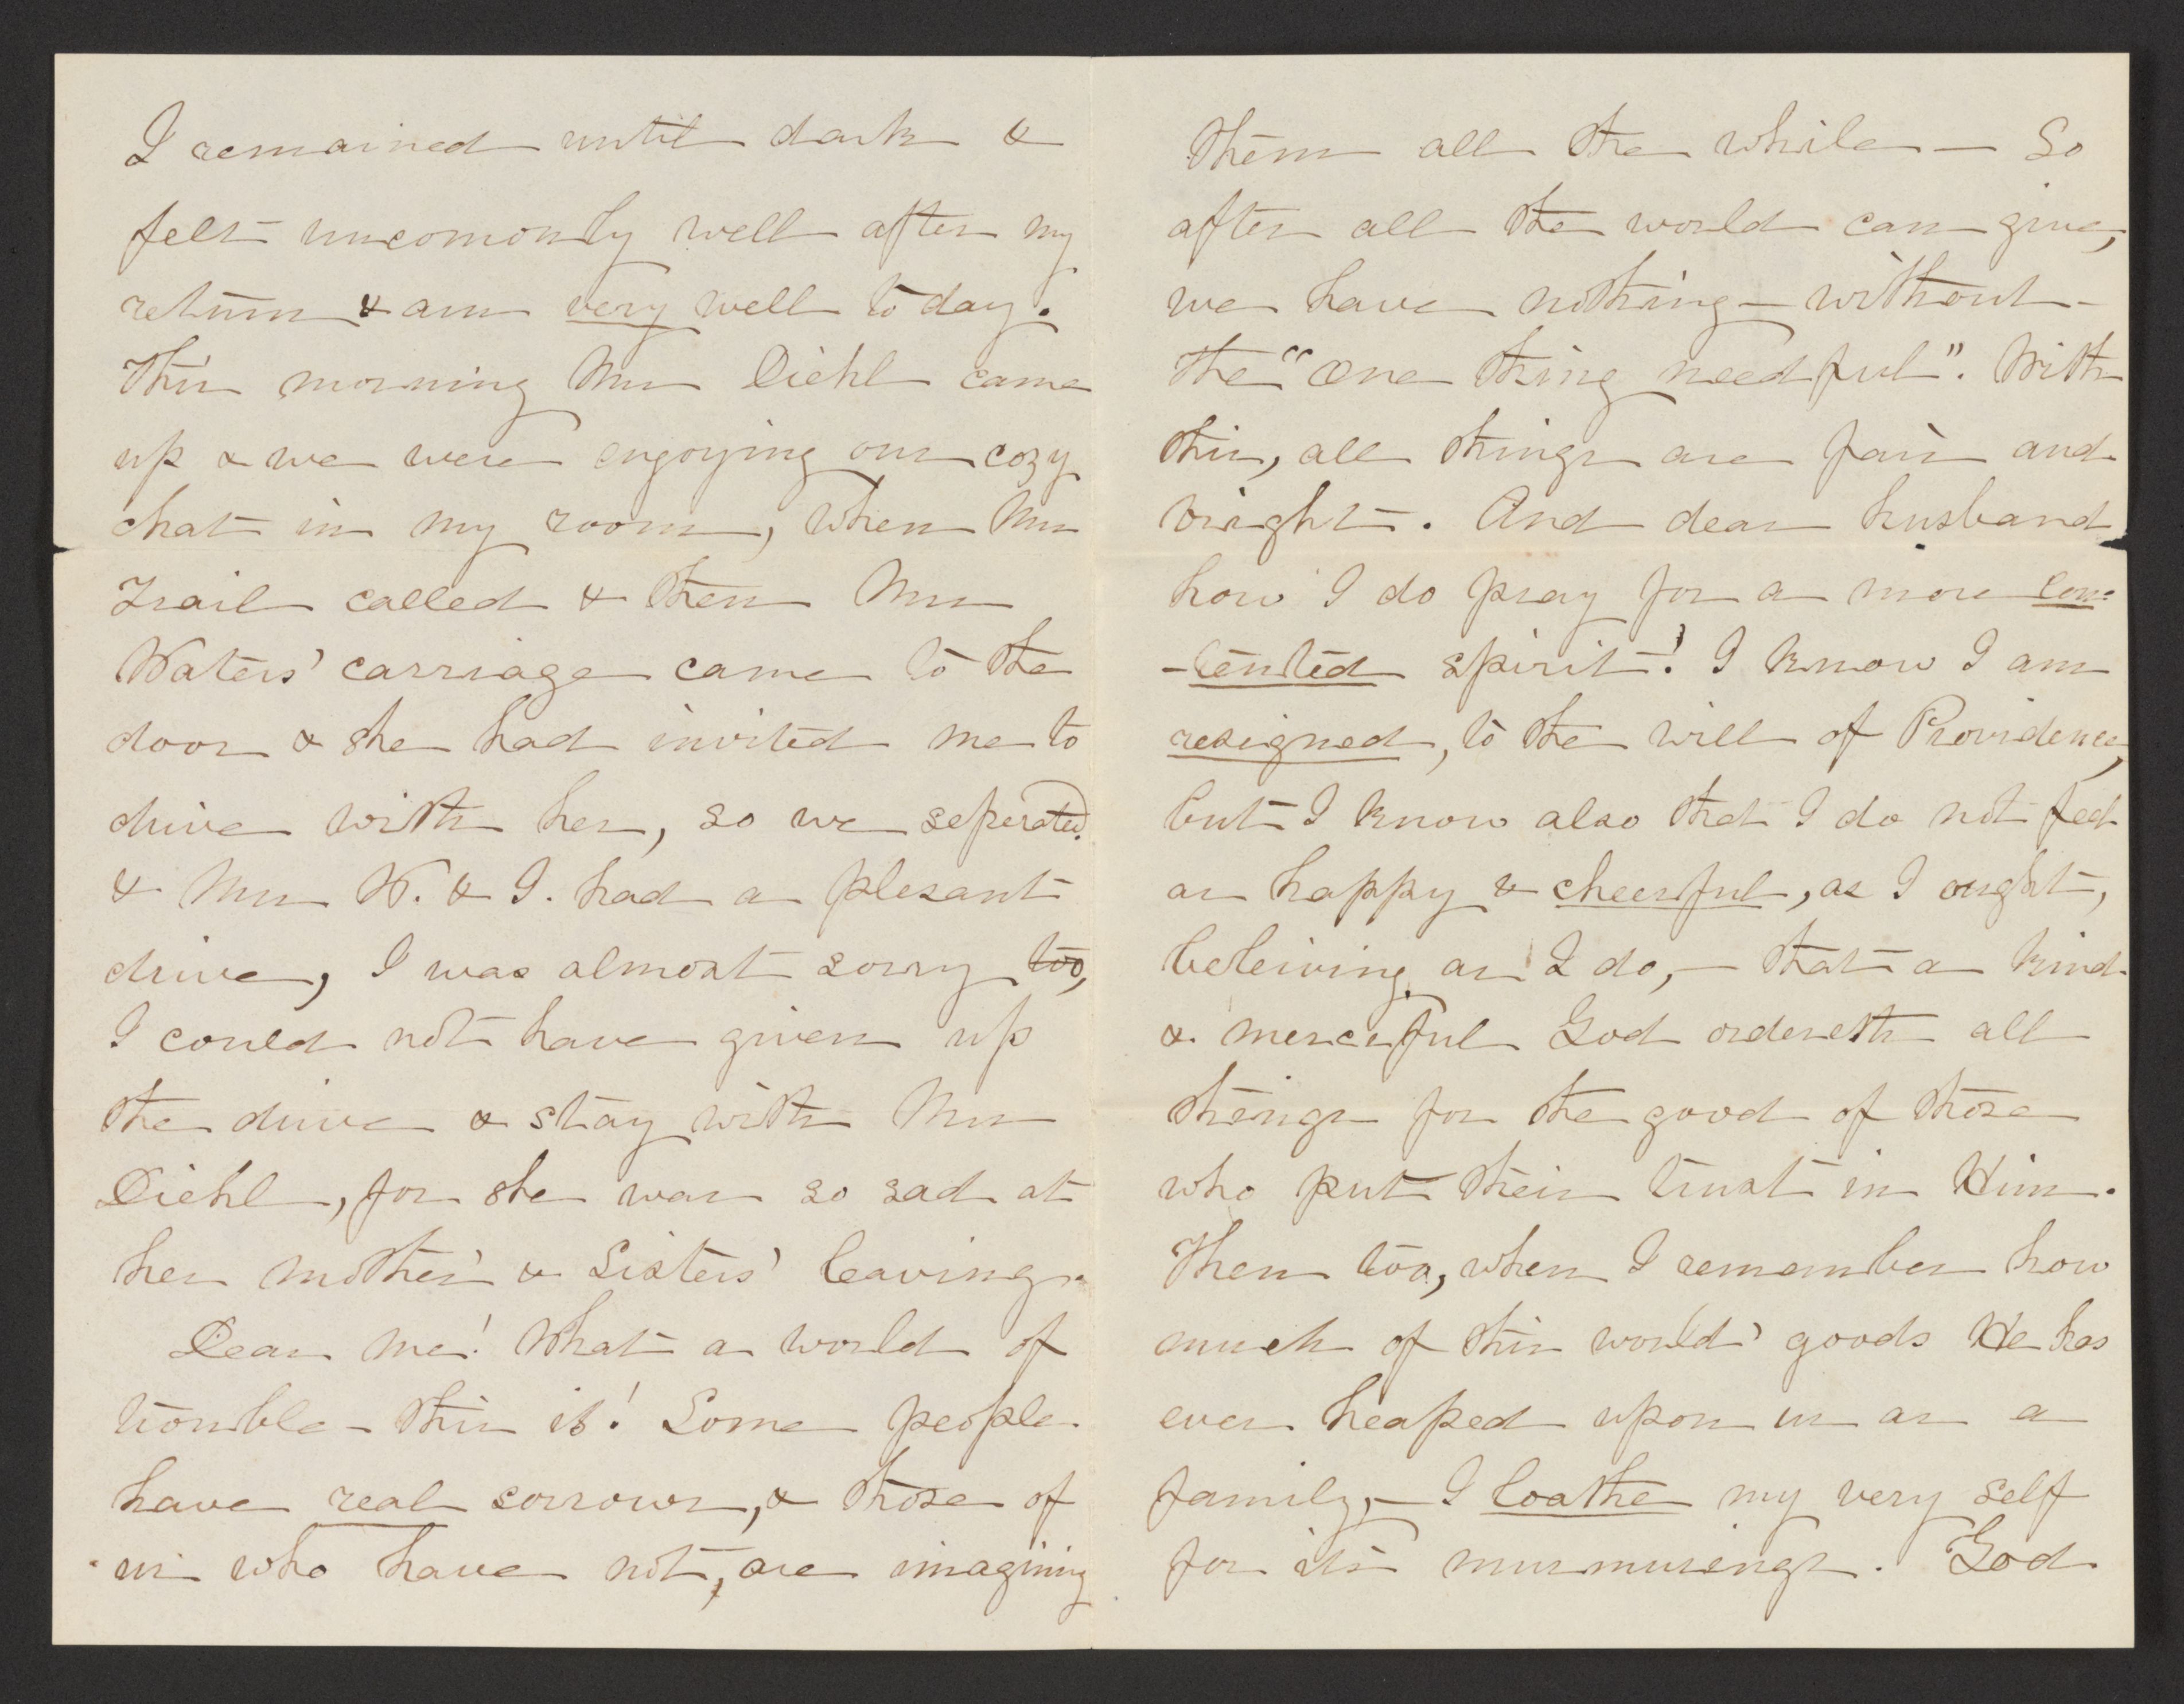 I remained until dark &
felt uncomonly well after my
return & am very well to day.
This morning Mrs Diehl came
up & we were engoying our cozy
chat in my room, when Mrs
Trail called & then Mrs
Waters' carriage came to the
door & she had invited me to
drive with her, so we seperated.
& Mrs W. & I. had a plesant
drive, I was almost sorry too,
I could not have given up
the drive & stay with Mrs
Diehl, for she was so sad at
her mother's & Sisters' leaving.
Dear me! What a world of
trouble - this is! Some people
have real sorrows, & those of
us who have not, are imagining
them all the while — So
after all the world can give,
we have nothing — without -
the "one thing needful". With
this, all things are fair and
bright. And dear husband
how I do pray for a more con-
-tented spirit! I know I am
resigned, to the will of Providence,
but I know also that I do not feel
as happy & cheerful, as I ought,
beleiving as I do, — that a kind
& merciful God ordereth all
things for the good of those
who put their trust in Him.
Then too, when I remember how
much of this world' goods He has
ever heaped upon us as a
family, — I loathe my very self
for its murmurings. God